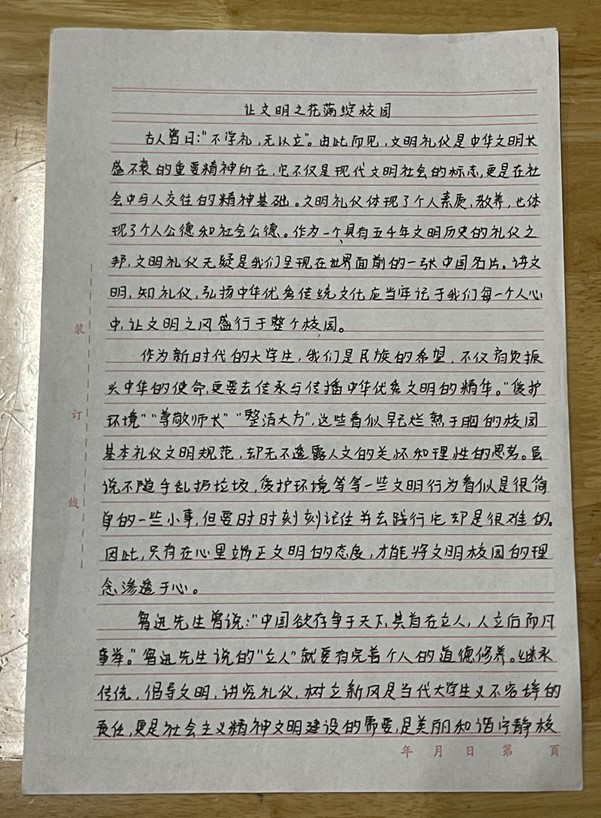 让文明之花满绽校园
古人曾曰:“不学礼,无以立”。由此可见,文明礼仪是中华文明长
盛不衰的重要精神所在,它不仅是现代文明社会的标志,更是在社
会中与人交往的精神基础。文明礼仪体现了个人素质,教养,也体
现了个人公德和社会公德。作为一个具有五千年文明历史的礼仪之
邦,文明礼仪无疑是我们呈现在世界面前的一张中国名片。讲文
明,知礼仪,弘扬中华优秀传统文化应当牢记于我们每一个人心
中,让文明之风盛行于整个校园。
作为新时代的大学生,我们是民族的希望,不仅肩负振
兴中华的使命,更要去传承与传播中华优秀文明的精华。“爱护
环境”“尊敬师长”“整洁大方”,这些看似早已烂熟于胸的校园
基本礼仪文明规范,却无不透露人文的关怀和理性的思考。虽
说不随手乱扔垃圾,爱护环境等等一些文明行为看似是很简
单的一些小事,但要时时刻刻记住并去践行它却是很难的。
因此,只有在心里端正文明的态度,才能将文明校园的理
念渗透于心。
鲁迅先生曾说:“中国欲存争于天下,其首在立人,人立后而凡
事举。”鲁迅先生说的“立人”就要有完善个人的道德修养。继承
传统,倡导文明,讲究礼仪,树立新风是当代大学生义不容辞的
责任,更是社会主义精神文明建设的需要,是美丽和谐宁静校
装
订
线
年 月 日 第 页